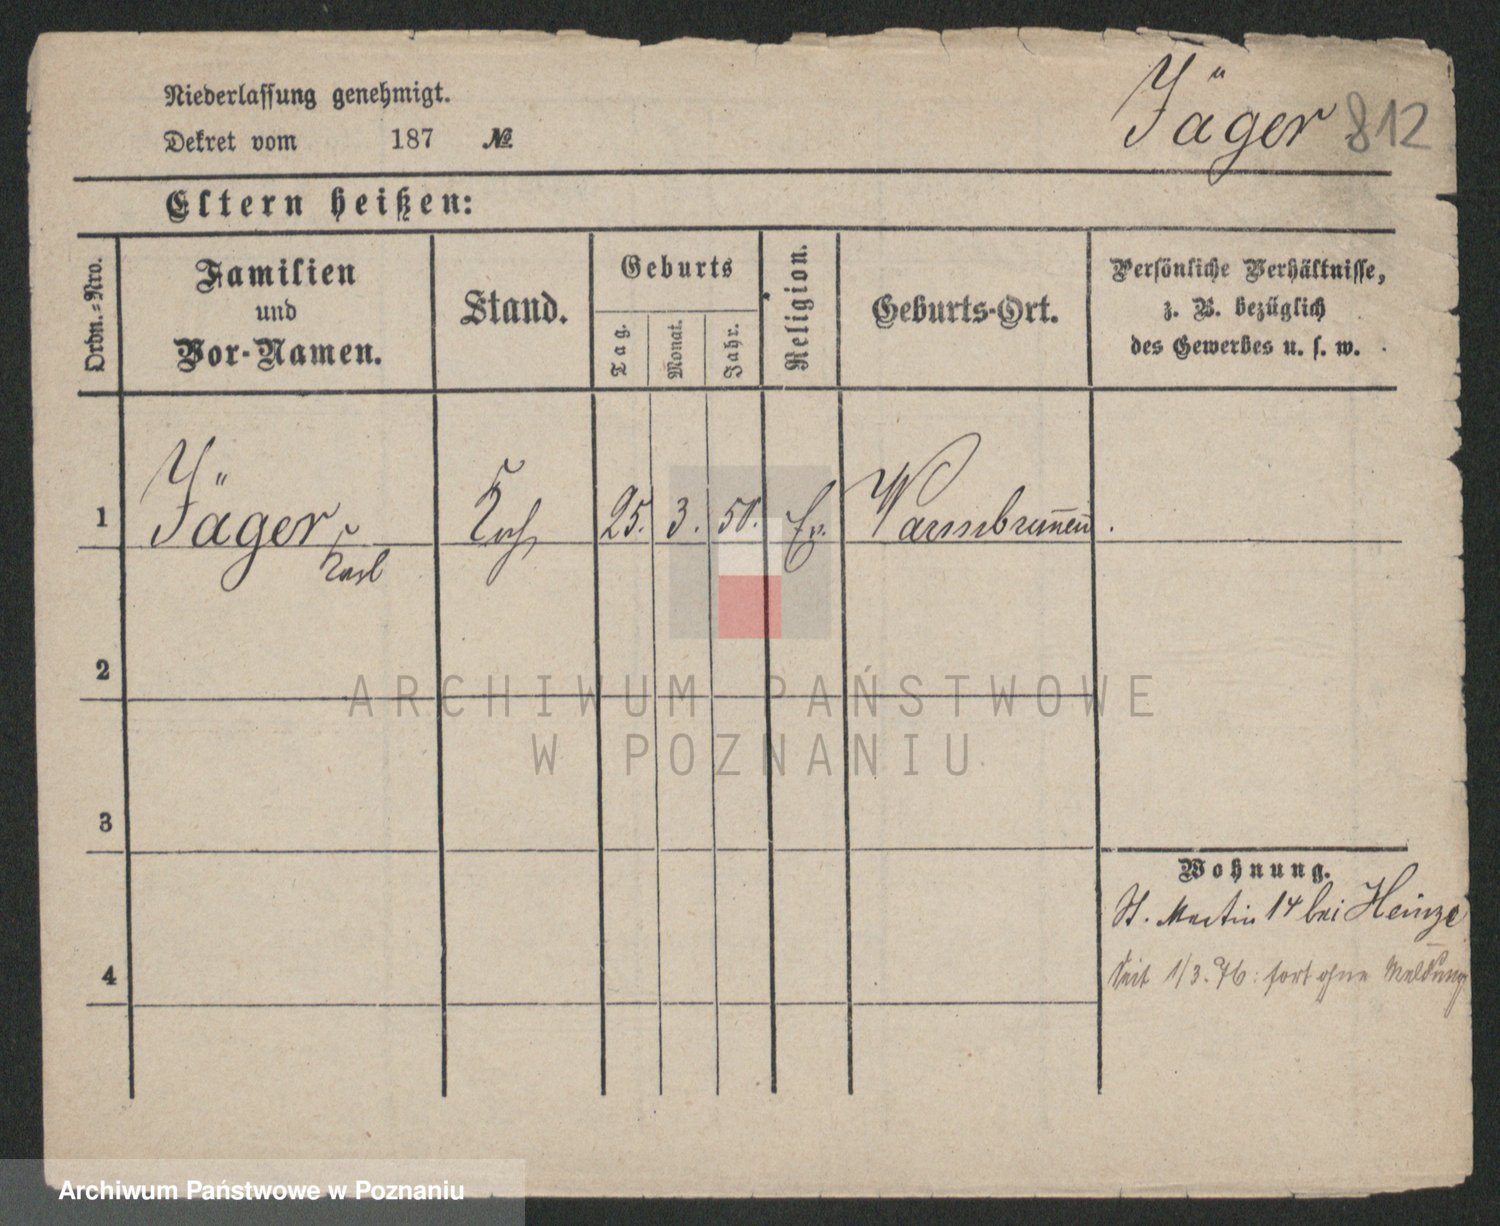 Niederlassung genehmigt.
Dekret vom 187 №
Jäger 812
Eltern heißen:
Ordn.-Nro.
Familien
und
Vor-Namen.
Stand.
Geburts
Tag.
Monat.
Jahr.
Religion.
Geburts-Ort.
Persönliche Verhältnisse,
z. B. bezüglich
des Gewerbes u. s. w.
1 Jäger Koch 25. 3. 50. Ev. Warmbrunnen.
Karl
2
3
4
Wohnung.
St. Martin 14 bei Heinze
Seit 1/3. 76: fort ohne Meldung
ARCHIWUM PAŃSTWOWE
W POZNANIU
Archiwum Państwowe w Poznaniu